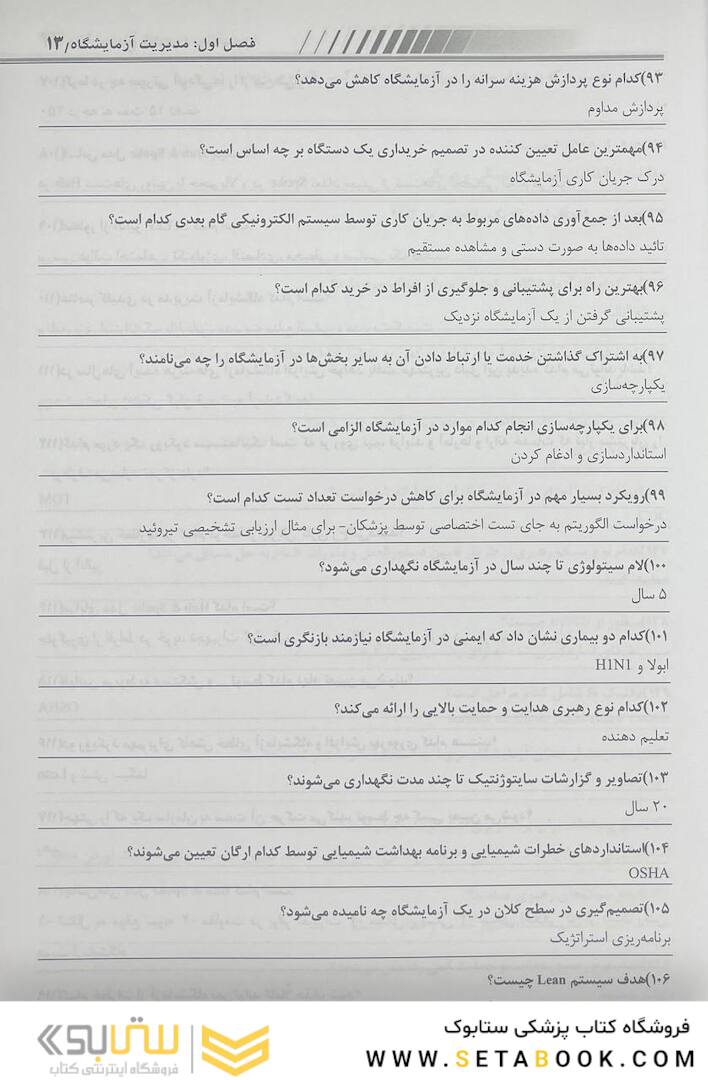 فصل اول: مدیریت آزمایشگاه/۱۳
۹۳)کدام نوع پردازش هزینه سرانه را در آزمایشگاه کاهش می‌دهد؟
پردازش مداوم
۹۴)مهمترین عامل تعیین کننده در تصمیم خریداری یک دستگاه بر چه اساس است؟
درک جریان کاری آزمایشگاه
۹۵)بعد از جمع‌آوری داده‌های مربوط به جریان کاری توسط سیستم الکترونیکی گام بعدی کدام است؟
تائید داده‌ها به صورت دستی و مشاهده مستقیم
۹۶)بهترین راه برای پشتیبانی و جلوگیری از افراط در خرید کدام است؟
پشتیبانی گرفتن از یک آزمایشگاه نزدیک
۹۷)به اشتراک گذاشتن خدمت یا ارتباط دادن آن به سایر بخش‌ها در آزمایشگاه را چه می‌نامند؟
یکپارچه‌سازی
۹۸)برای یکپارچه‌سازی انجام کدام موارد در آزمایشگاه الزامی است؟
استانداردسازی و ادغام کردن
۹۹)رویکرد بسیار مهم در آزمایشگاه برای کاهش درخواست تعداد تست کدام است؟
درخواست الگوریتم به جای تست اختصاصی توسط پزشکان- برای مثال ارزیابی تشخیصی تیروئید
۱۰۰)لام سیتولوژی تا چند سال در آزمایشگاه نگهداری می‌شود؟
۵ سال
۱۰۱)کدام دو بیماری نشان داد که ایمنی در آزمایشگاه نیازمند بازنگری است؟
ابولا و H1N1
۱۰۲)کدام نوع رهبری هدایت و حمایت بالایی را ارائه می‌کند؟
تعلیم دهنده
۱۰۳)تصاویر و گزارشات سایتوژنتیک تا چند مدت نگهداری می‌شوند؟
۲۰ سال
۱۰۴)استانداردهای خطرات شیمیایی و برنامه بهداشت شیمیایی توسط کدام ارگان تعیین می‌شوند؟
OSHA
۱۰۵)تصمیم‌گیری در سطح کلان در یک آزمایشگاه چه نامیده می‌شود؟
برنامه‌ریزی استراتژیک
۱۰۶)هدف سیستم Lean چیست؟
فروشگاه کتاب پزشکی ستابوک
WWW.SETABOOK.COM
ستابوک
فروشگاه اینترنتی کتاب